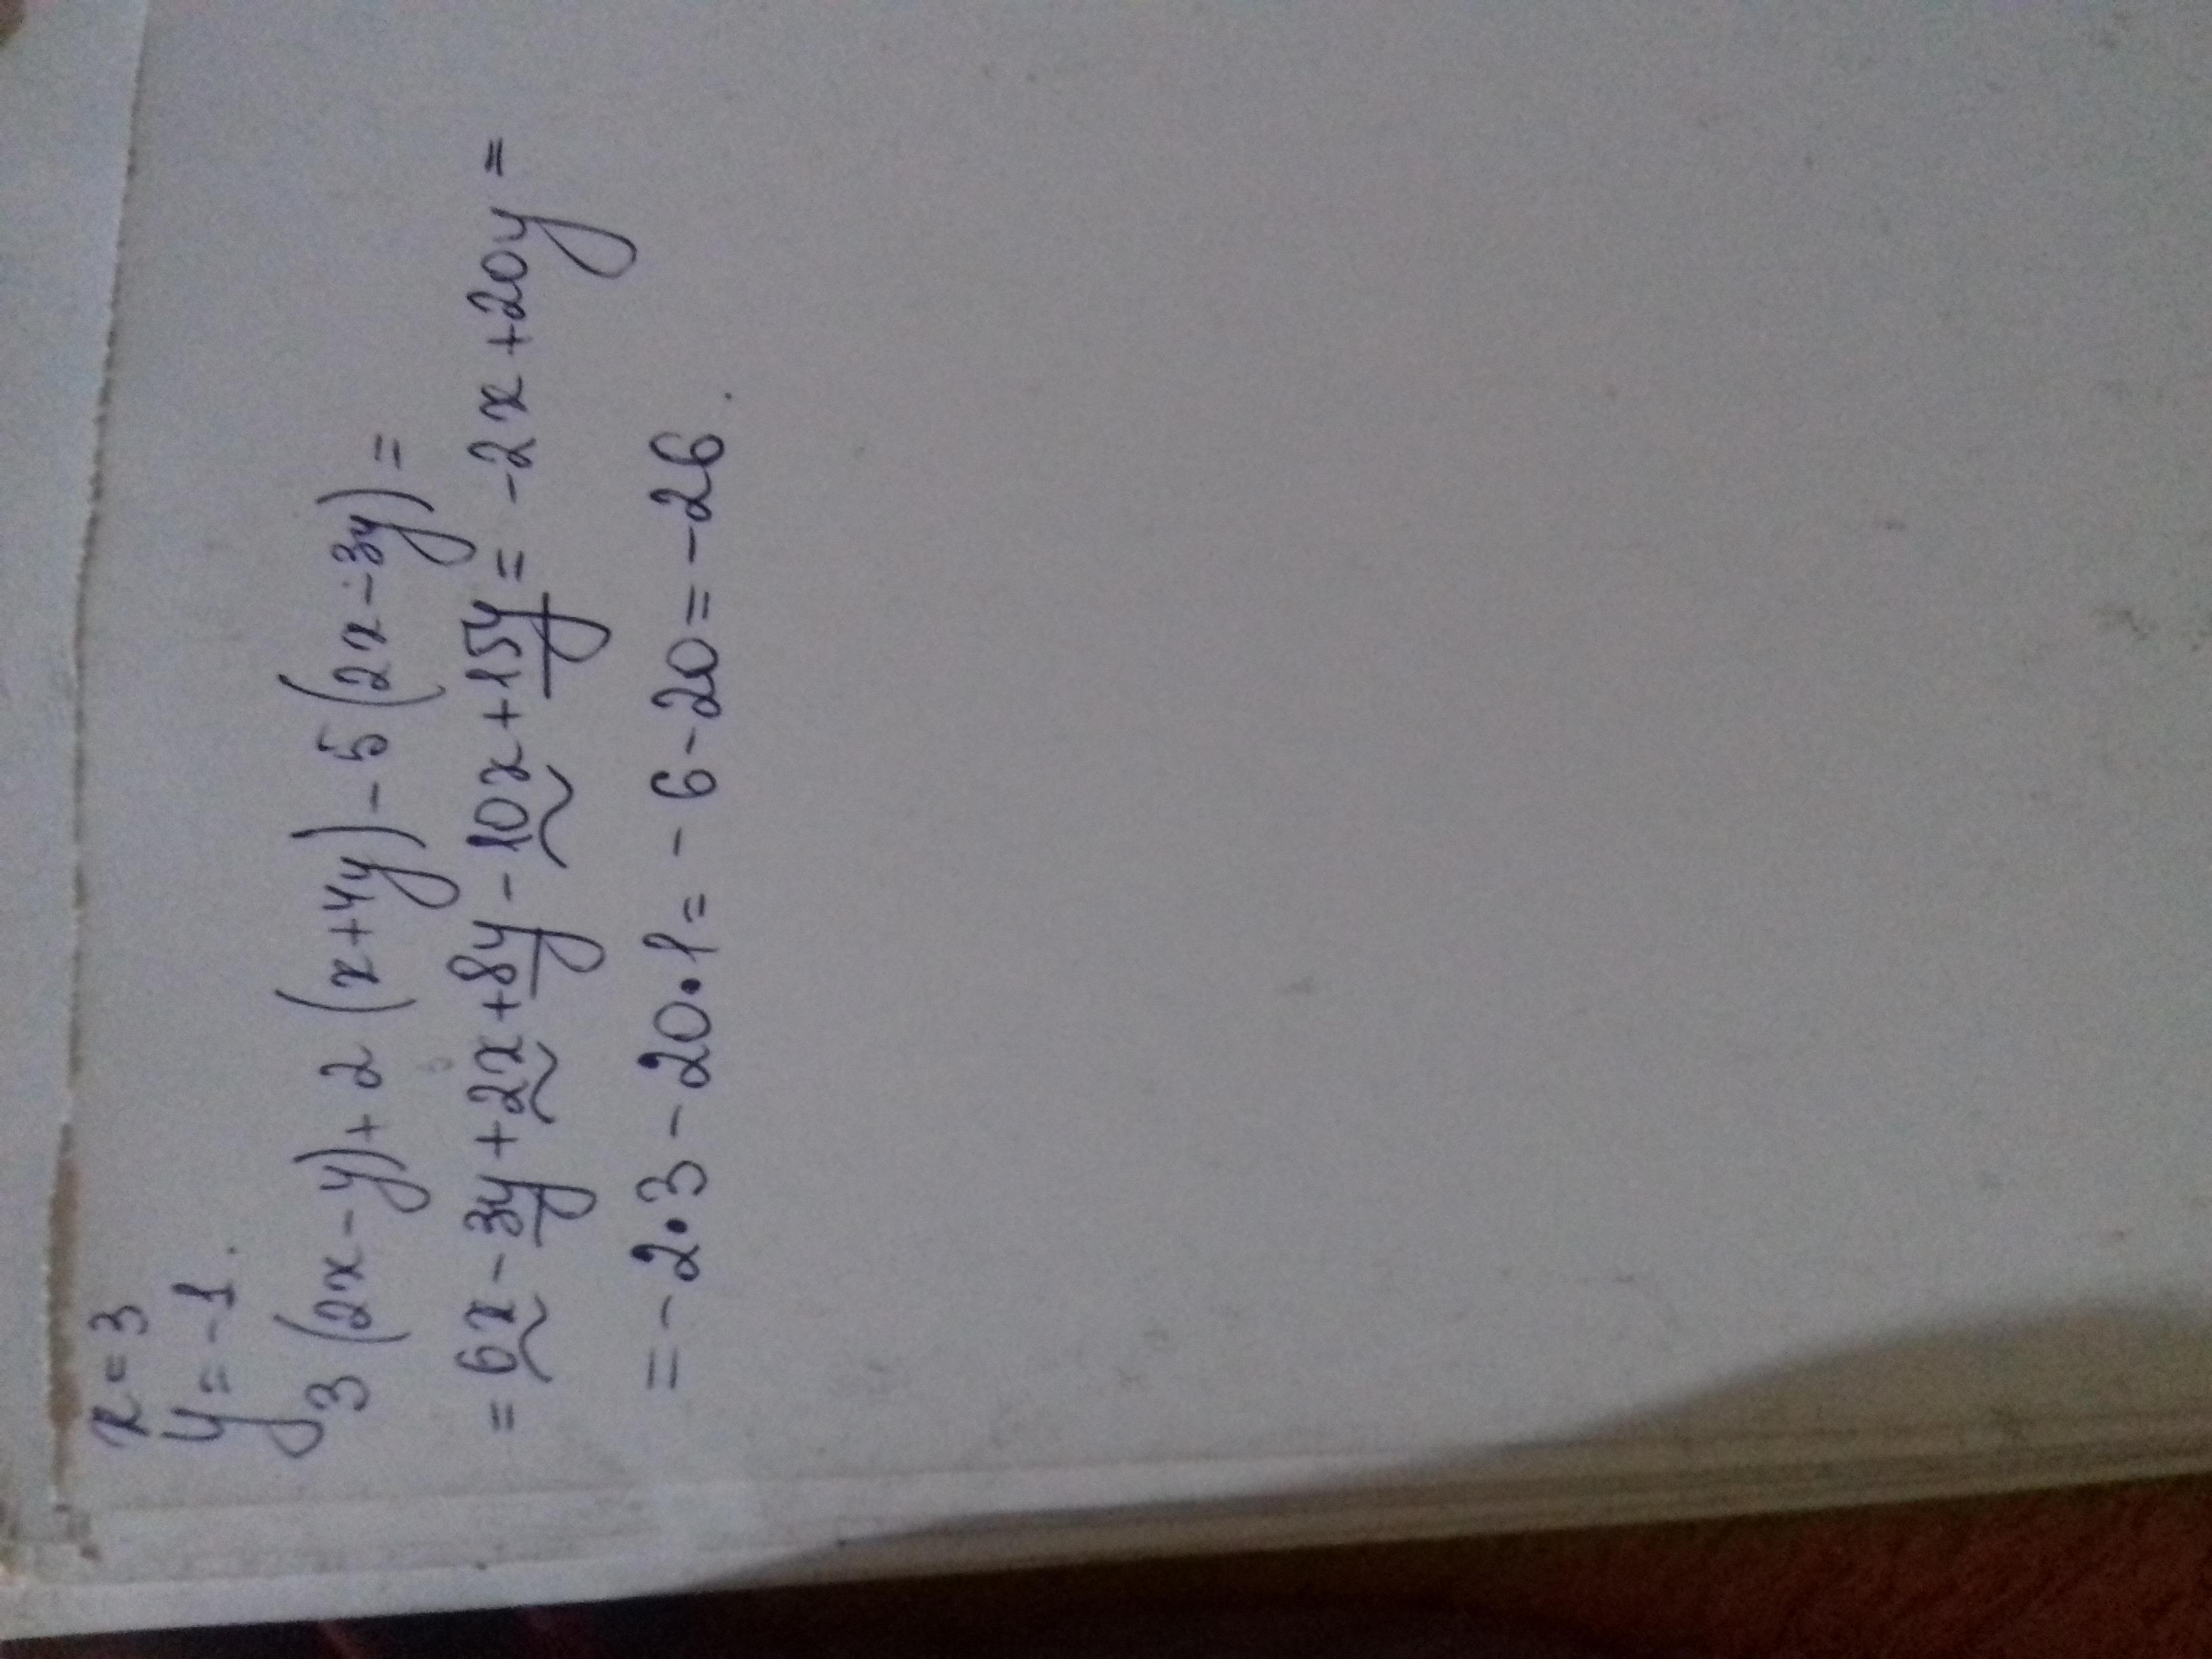 x=3
y=-1.
3(2x-y)+2(x+4y)-5(2x-3y)=
=6x-3y+2x+8y-10x+15y=-2x+20y=
=-2•3-20•1=-6-20=-26.